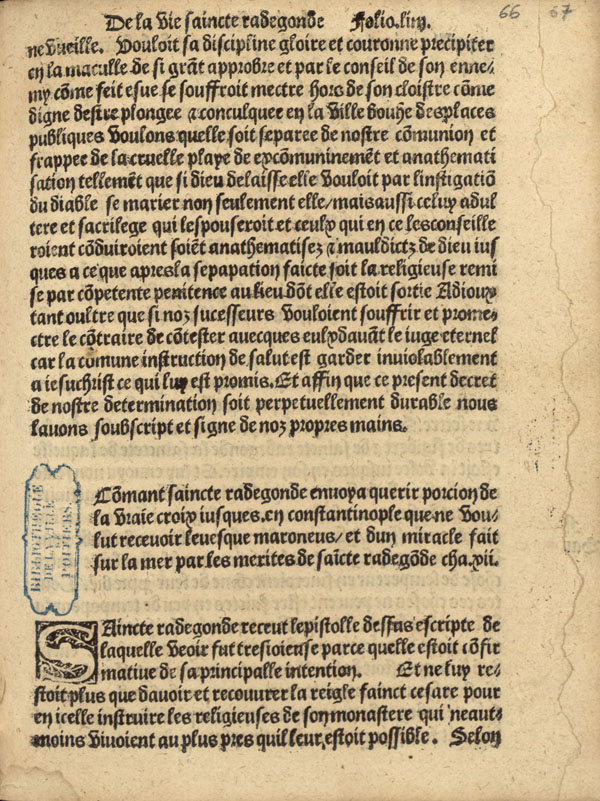 De la vie saincte radegonde Folio.liiij.
66 67
ne vueille. Vouloit sa discipline gloire et couronne precipiter
en la maculle de si grāt approbre et par le conseil de son enne⸗
my cōme feit esue se souffroit mectre hors de son cloistre cōme
digne destre plongee ⁊ conculquee en la ville bouhe des places
publiques Voulons quelle soit separee de nostre cōmunion et
frappee de la cruelle playe de excōmuninemēt et anathemati
sation tellemēt que si dieu delaisse elle vouloit par linstigatiō
du diable se marier non seulement elle/ mais aussi celuy adul
tere et sacrilege qui lespouseroit et ceulx qui en ce lesconseille
roient cōduiroient soiēt anathematisez ⁊ mauldictz de dieu ius
ques a ce que apres la sepapation faicte soit la religieuse remi
se par cōpetente penitence au lieu dōt elle estoit sortie Adioux
tant oultre que si noz sucesseurs vouloient souffrir et prome⸗
ctre le cōtraire de cōtester auecques eulx dauāt le iuge eternel
car la comune instruction de salut est garder inuiolablement
a iesuchrist ce qui luy est promis. Et affin que ce present decret
de nostre determination soit perpetuellement durable nous
lauons soubscript et signe de noz propres mains.
Cōmant saincte radegonde enuoya querir porcion de
la vraie croix iusques.en constantinople que ne vou⸗
lut receuoir leuesque maroneus/ et dun miracle fait
sur la mer par les merites de saīcte radegōde cha.xii.
BIBLIOTHEQUE
DE LA VILLE
POITIERS
SAincte radegonde receut lepistolle dessus escripte de
laquelle veoir fut tresioieuse parce quelle estoit cōfir
matiue de sa principalle intention. Et ne luy re⸗
stoit plus que dauoir et recouurer la reigle sainct cesare pour
en icelle instruire les religieuses de son monastere qui neaut⸗
moins viuoient au plus pres quil leur estoit possible. Selon